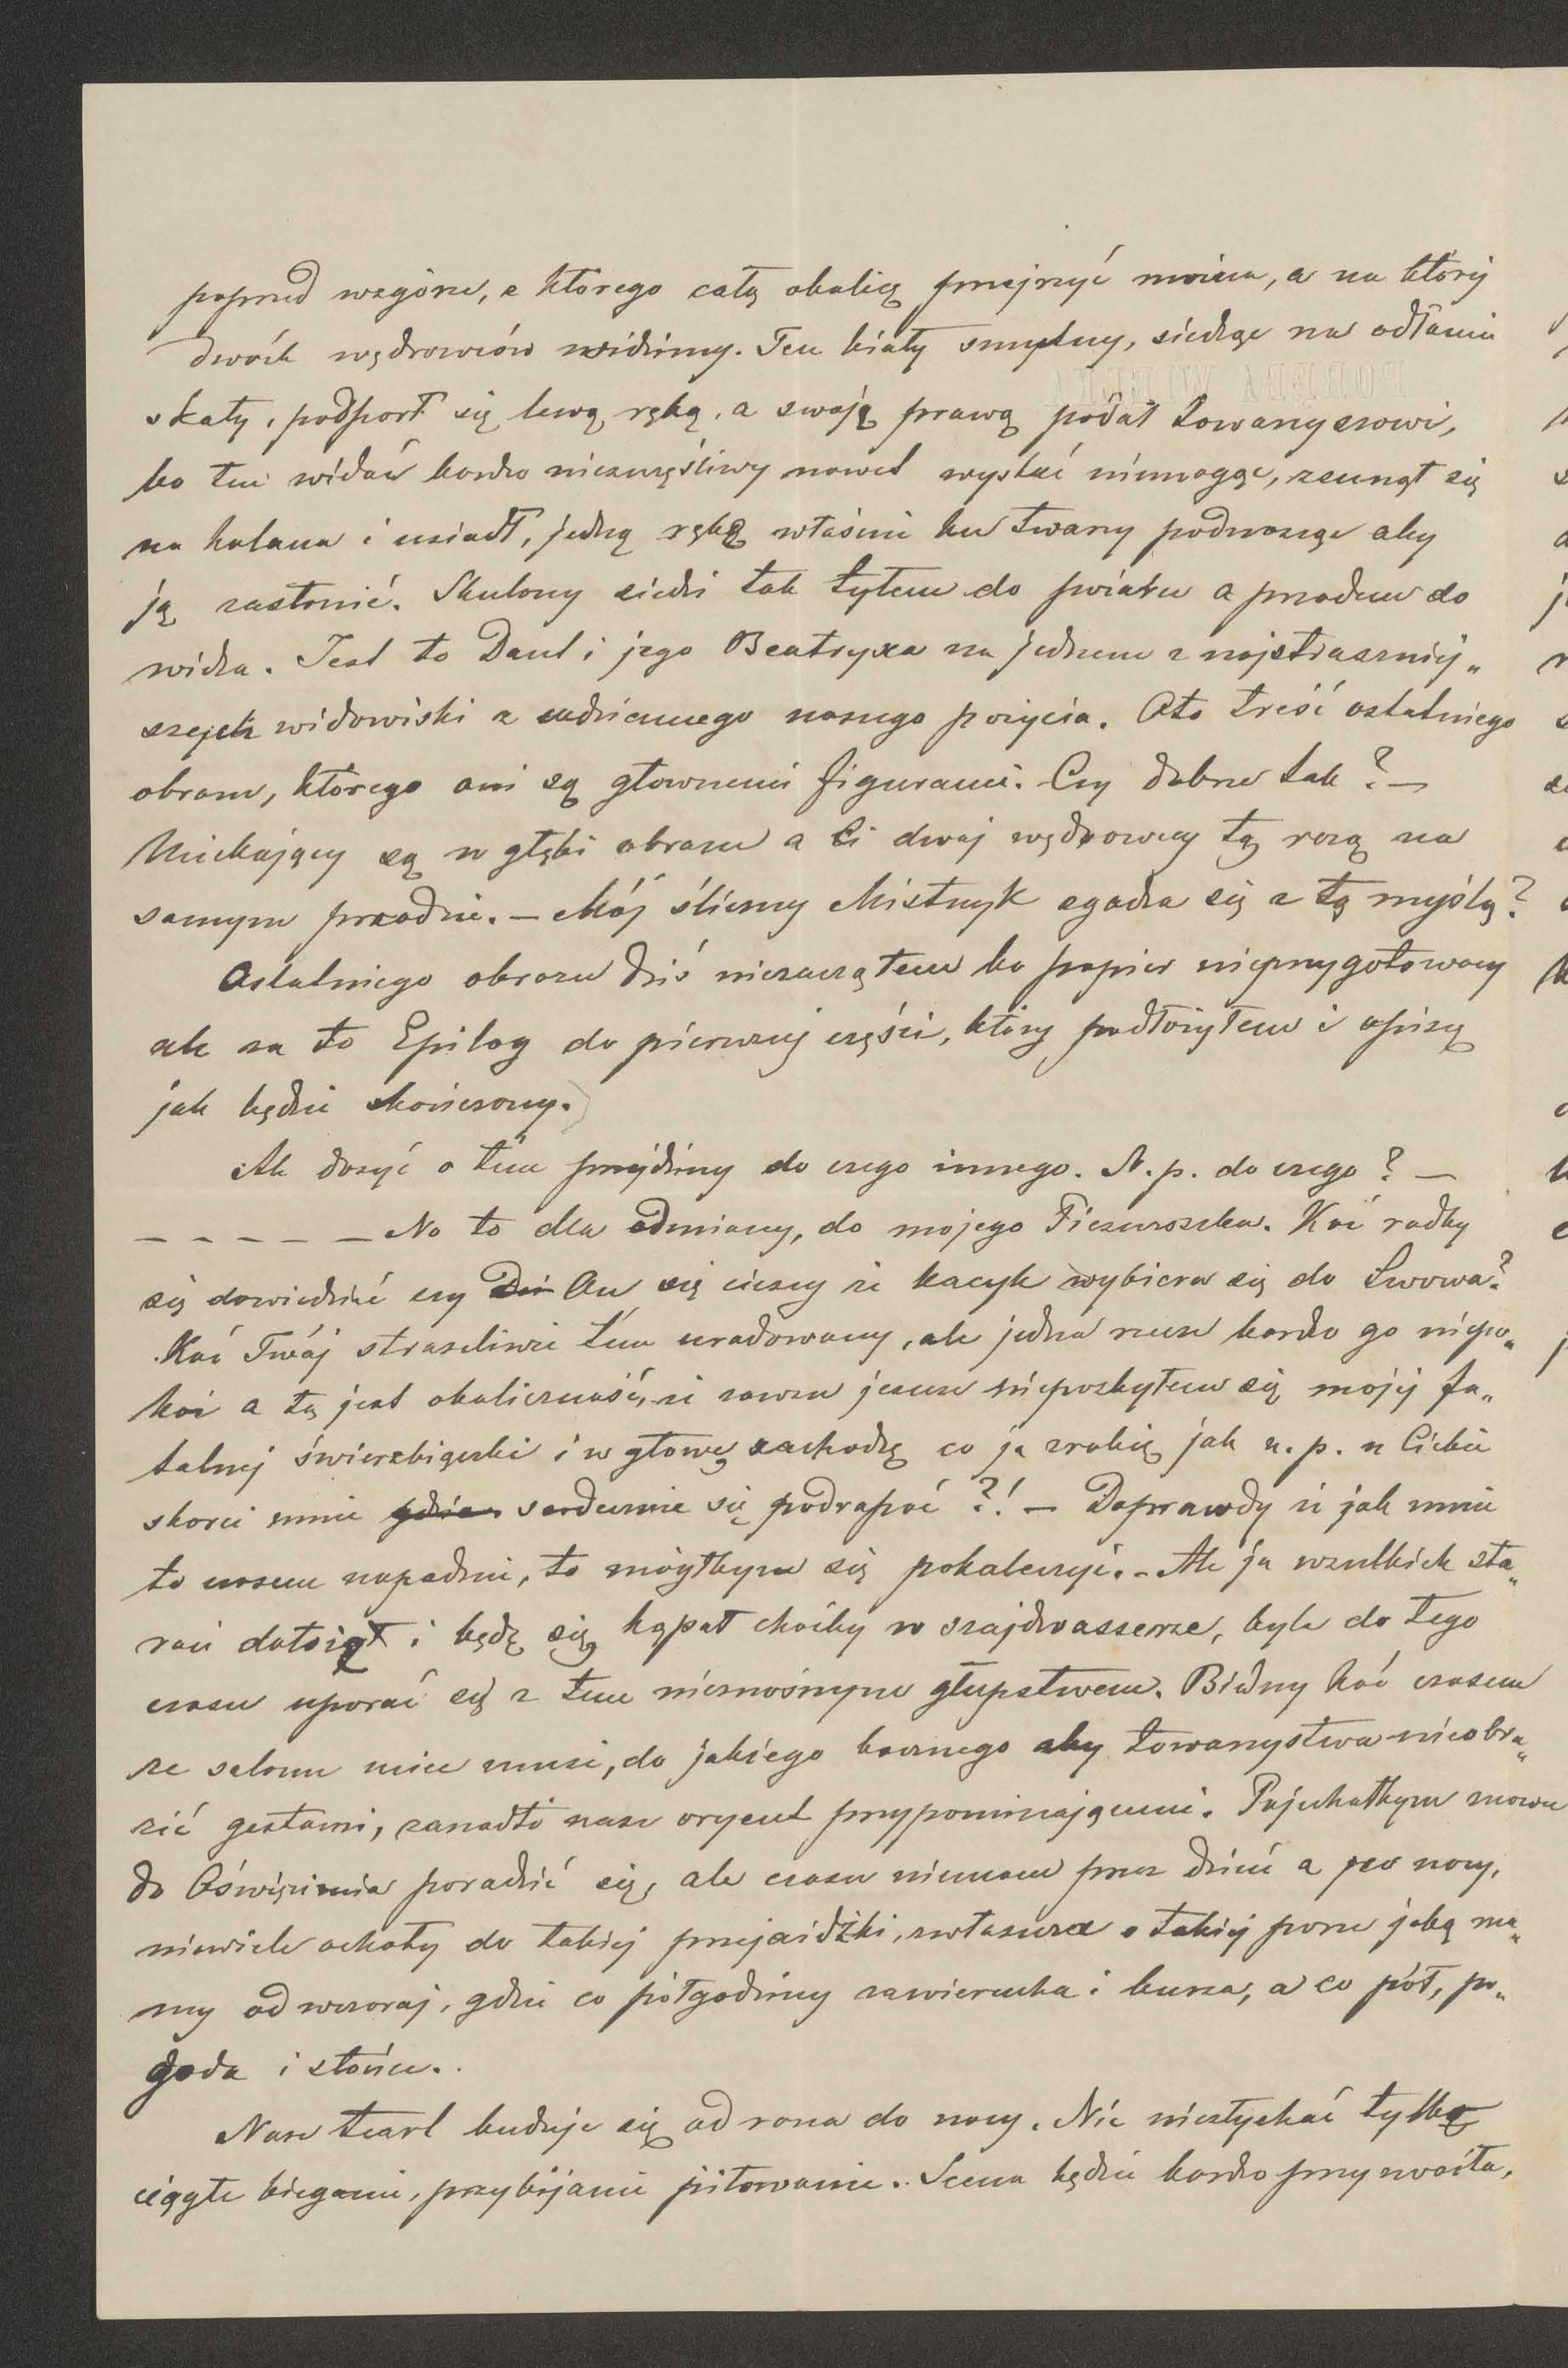 poprzed wzgórze, z którego całą okolicę przejrzyć można, a na której
dwóch wędrowców widzimy. Ten biały smętny, siedząc na odłamie
skały, podparł się lewą ręką, a swoją prawą podał towarzyszowi,
bo ten widać bardzo nieszczęśliwy nawet wystać niemogąc, zsunął się
na kolana i usiadł, jedną rękę właśnie ku twarzy podnosząc aby
ją zasłonić. Skulony siedzi tak tyłem do świata a przodem do
widza. Jest to Dant i jego Beatryxa na jednem z najstraszniej„
szych widowisk z codziennego naszego pożycia. Oto treść ostatniego
obrazu, którego oni są głownemi figurami. Czy dobrze tak? —
Uciekający są w głębi obrazu a Ci dwaj wędrowcy tą rażą na
samym przodzie. — Mój śliczny Mistrzyk zgadza się z tą myślą?
Ostatniego obrazu dziś niezacząłem bo papier nieprzygotowany
ale za to Epilog do pierwszej części, który podłożyłem i opiszę
jak będzie skończony.
Ale dosyć o tém przejdźmy do czego innego. N.p. do czego? —
— — — — — No to dla odmiany, do mojego Ficzuroszka. Kać radby
się dowiedzieć czy On się cieszy że kacyk wybiera się do Lwowa?
Kać Twój straszliwie tém uradowany, ale jedna rzecz bardzo go niepo„
koi a tą jest okoliczność, że zawsze jeszcze niepozbyłem się mojej fa„
talnej świerzbiączki i w głowę zachodzę co ja zrobię jak n.p. u Ciebie
skorci mnie gdzie serdecznie się podrapać?! — Doprawdy że jak mnie
to czasem napadnie, to mógłbym się pokaleczyć. — Ale ja wszelkich sta„
rań dołożę i będę się kąpał choćby w szajdwasserze, byle do tego
czasu uporać się z tem nieznośnym głupstwem. Biedny Kać czasem
ze salonu uciec musi, do jakiego bocznego aby towarzystwa nieobra„
zić gestami, zanadto nasz oryent przypominającemi. Pojechałbym znowu
do Oświęcimia poradzić się, ale czasu niemam przez dzień a po nocy,
niewiele ochoty do takiej przejażdżki, zwłaszcza o takiej porze jaką ma„
my od wczoraj, gdzie co półgodziny zawierucha i burza, a co pół, po„
goda i słońce.
Nasz teatr buduje się od rana do nocy. Nic niesłychać tylko
ciągłe bieganie, przybijanie piłowanie. Scena będzie bardzo przyzwoita,